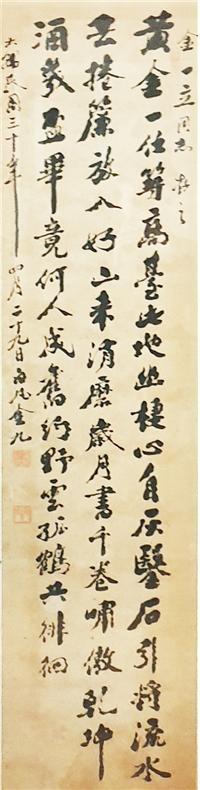 金一立同志 存之
黃金一任築高臺此地幽棲心自灰鑿石引將流水
去捲簾放入好山來消磨歲月書千卷嘯傲乾坤
酒幾盃畢竟何人成舊約野雲孤鶴共徘徊
大韓民国三十年 四月二十九日 白凡金九